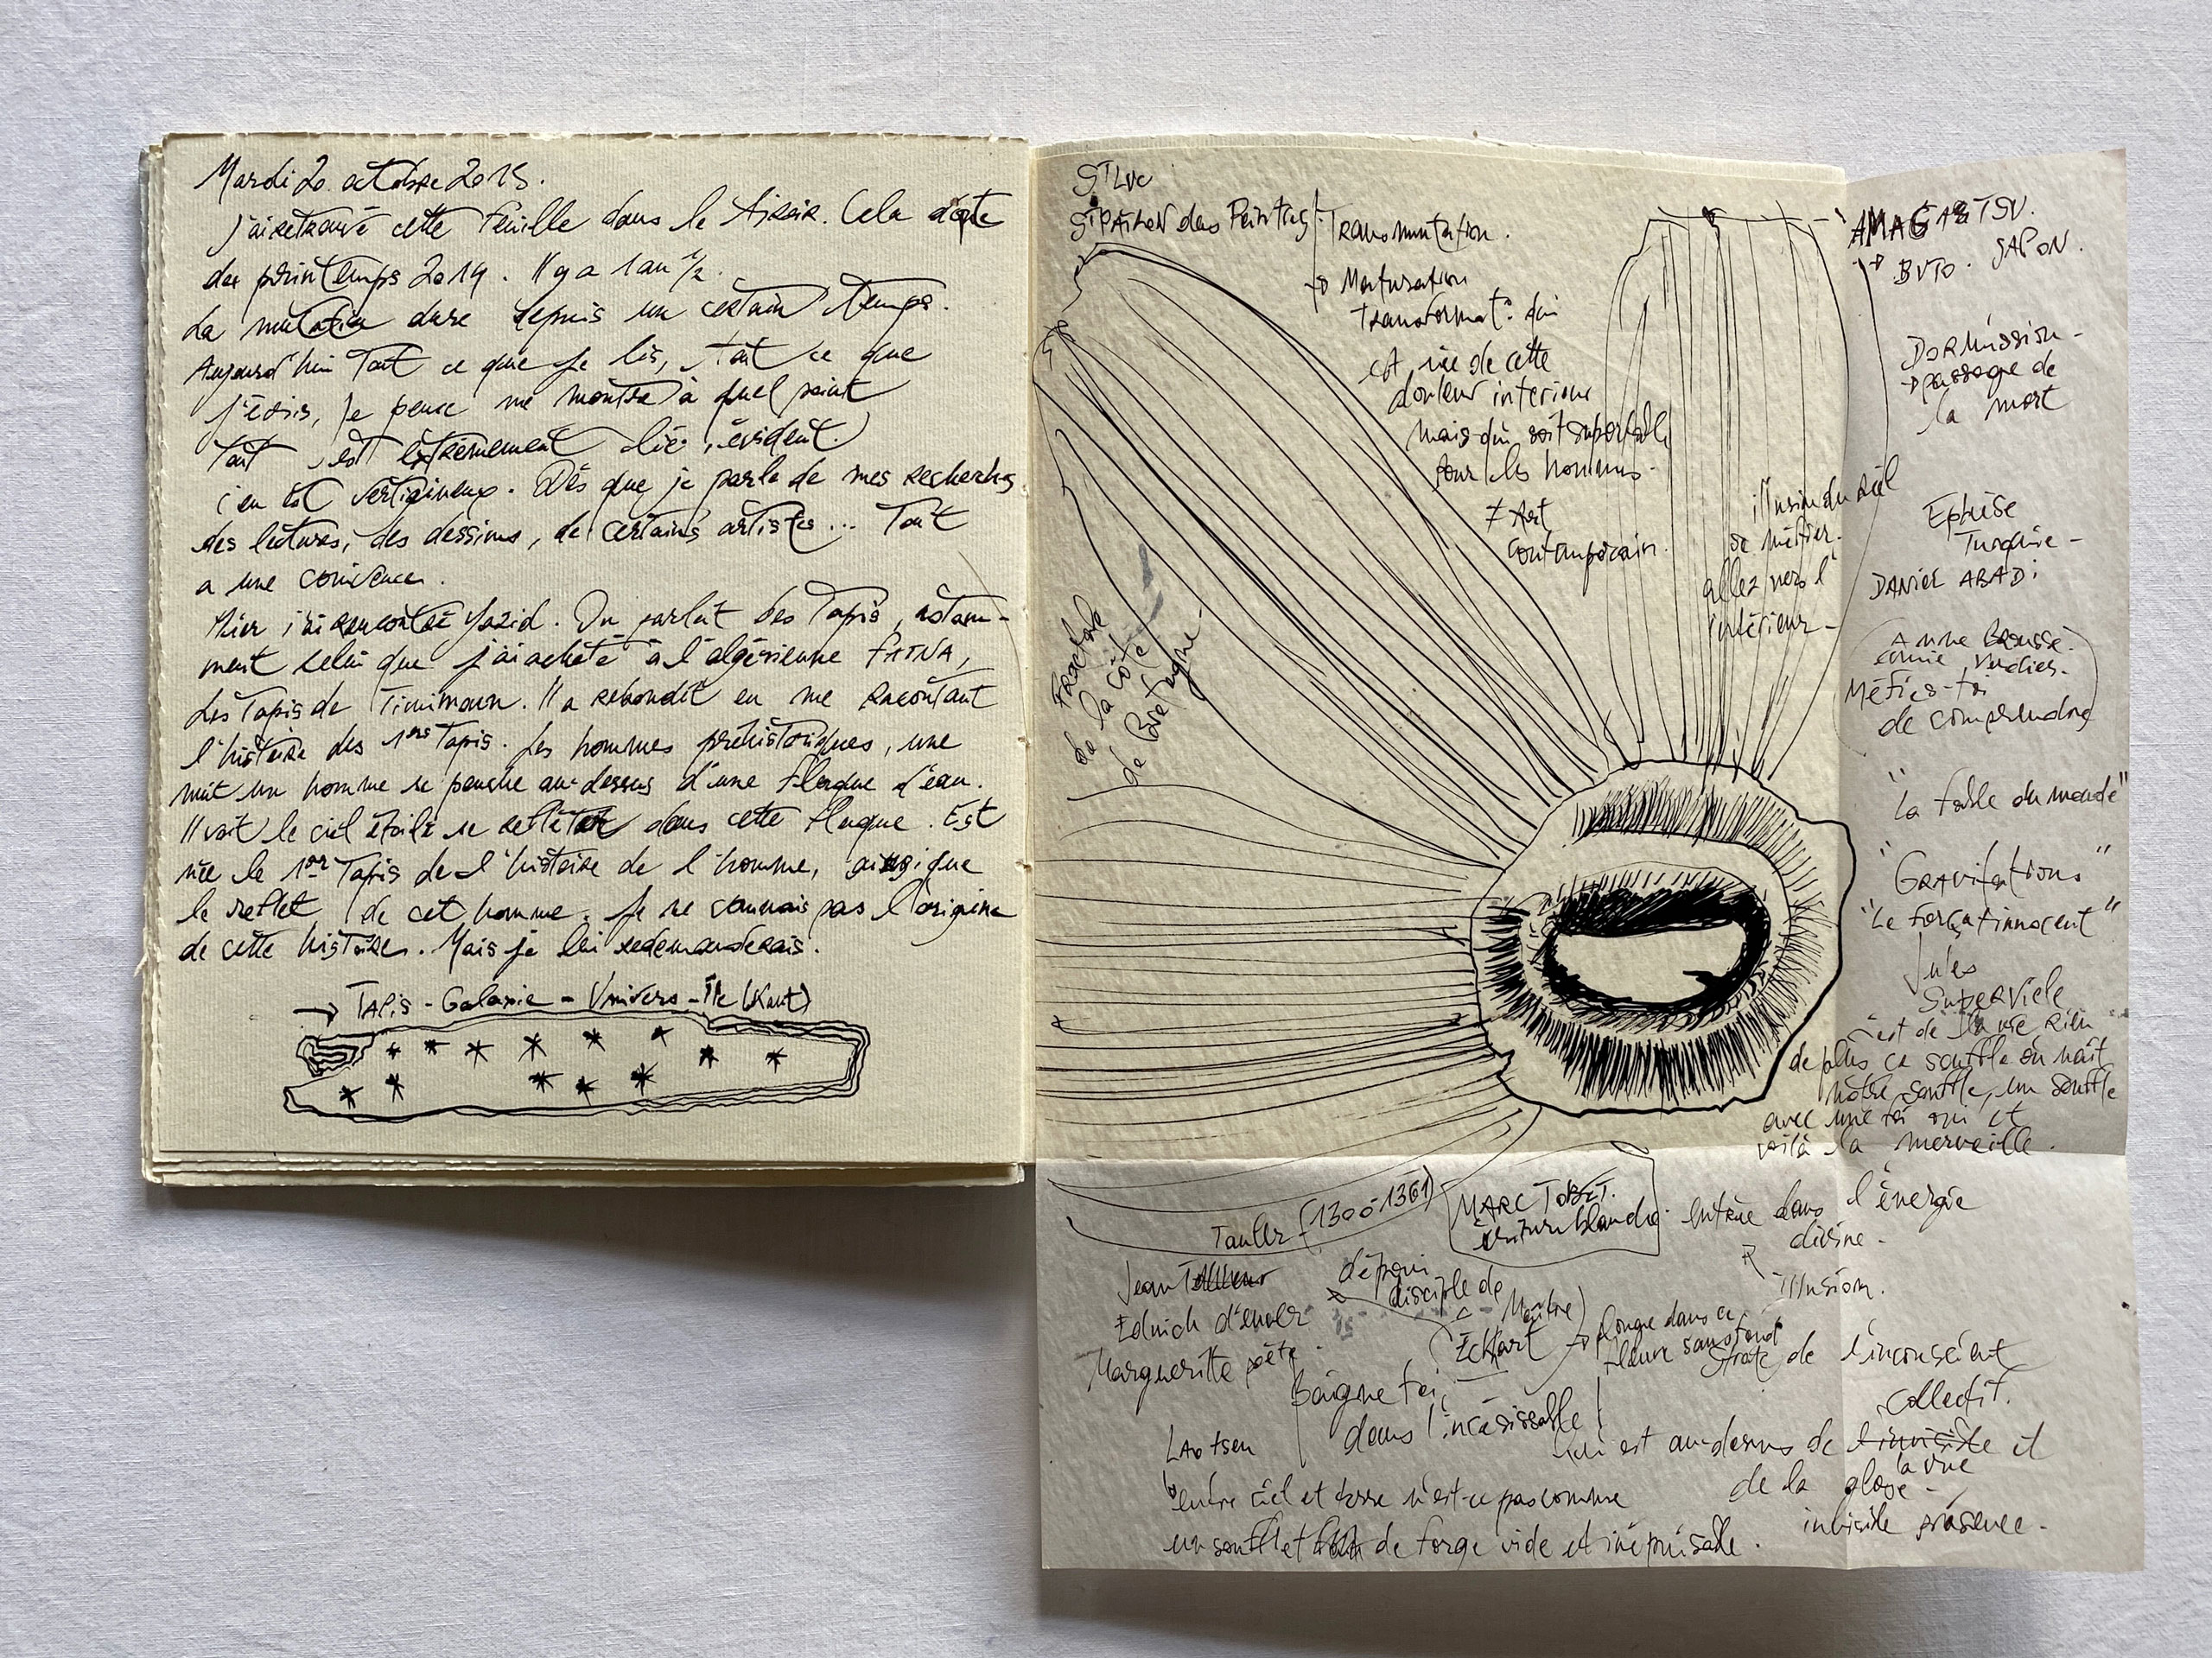 Mardi 20 octobre 2015.
j'ai retrouvé cette feuille dans le tiroir. Cela date
du printemps 2014. Il y a 1 an 1/2.
La mutation dure depuis un certain temps.
Aujourd'hui Tout ce que je lis, tout ce que
j'écris, je pense me montre à quel point
tout est extrêmement lié, évident.
c'en est vertigineux. Dès que je parle de mes recherches
des lectures, des dessins, de certains artistes... Tout
a une
Hier j'ai rencontré Yazid. On parlait des Tapis, notam-
ment celui que j'ai acheté à l'algérienne FATNA,
Les Tapis de Timimoun. Il a rebondit en me Racontant
l'histoire des 1ers Tapis. Les hommes préhistoriques, une
nuit un homme se penche au-dessus d'une flaque d'eau.
Il voit le ciel étoilé se refléter dans cette flaque. Est
née le 1er Tapis de l'histoire de l'homme, ainsi que
le reflet de cet homme. Je ne connais pas l'origine
de cette histoire. Mais je lui redemanderais.
→ TAPIS - Galaxie - Univers - Île (Kant)
ST LUC
ST PATRON des Peintres
Transmutation.
→ Maturation
transformat° qui
est née de cette
douleur intérieure
mais qui soit supportable
pour les hommes.
≠ Art
Contemporain.
Fractale
de la côte
de Bretagne.
illusion du réel
se méfier.
allez vers l'
intérieur
AMAGATSU.
→ BUTO. JAPON.
DORMission -
→ passage de
la mort
Ephèse
Turquie -
DANIEL ABADi
Anne Brousse.
Méfies-toi
de comprendre
"La fable du monde"
"Gravitations"
"Le forçat innocent"
Jules
Superviele
c'est de la vie rien
de plus ce souffle où naît
nôtre souffle, un souffle
avec une foi qui et
voilà la merveille.
Tauler (1300-1361)
MARC TOBET.
écriture blanche.
entrée dans l'énergie
divine -
illusion.
Jean
Marguerite poète.
disciple de
Maître
Eckart → plonge dans ce
fleuve sans fond
strate de l'inconscient
collectif.
Baigne toi,
dans l'incasissable
qui est au-dessus de l'invisible et
la vue
de la glose -
invisible présence.
Lao tseu
↳ entre ciel et terre n'est-ce pas comme
un soufflet de forge vide et inépuisable.